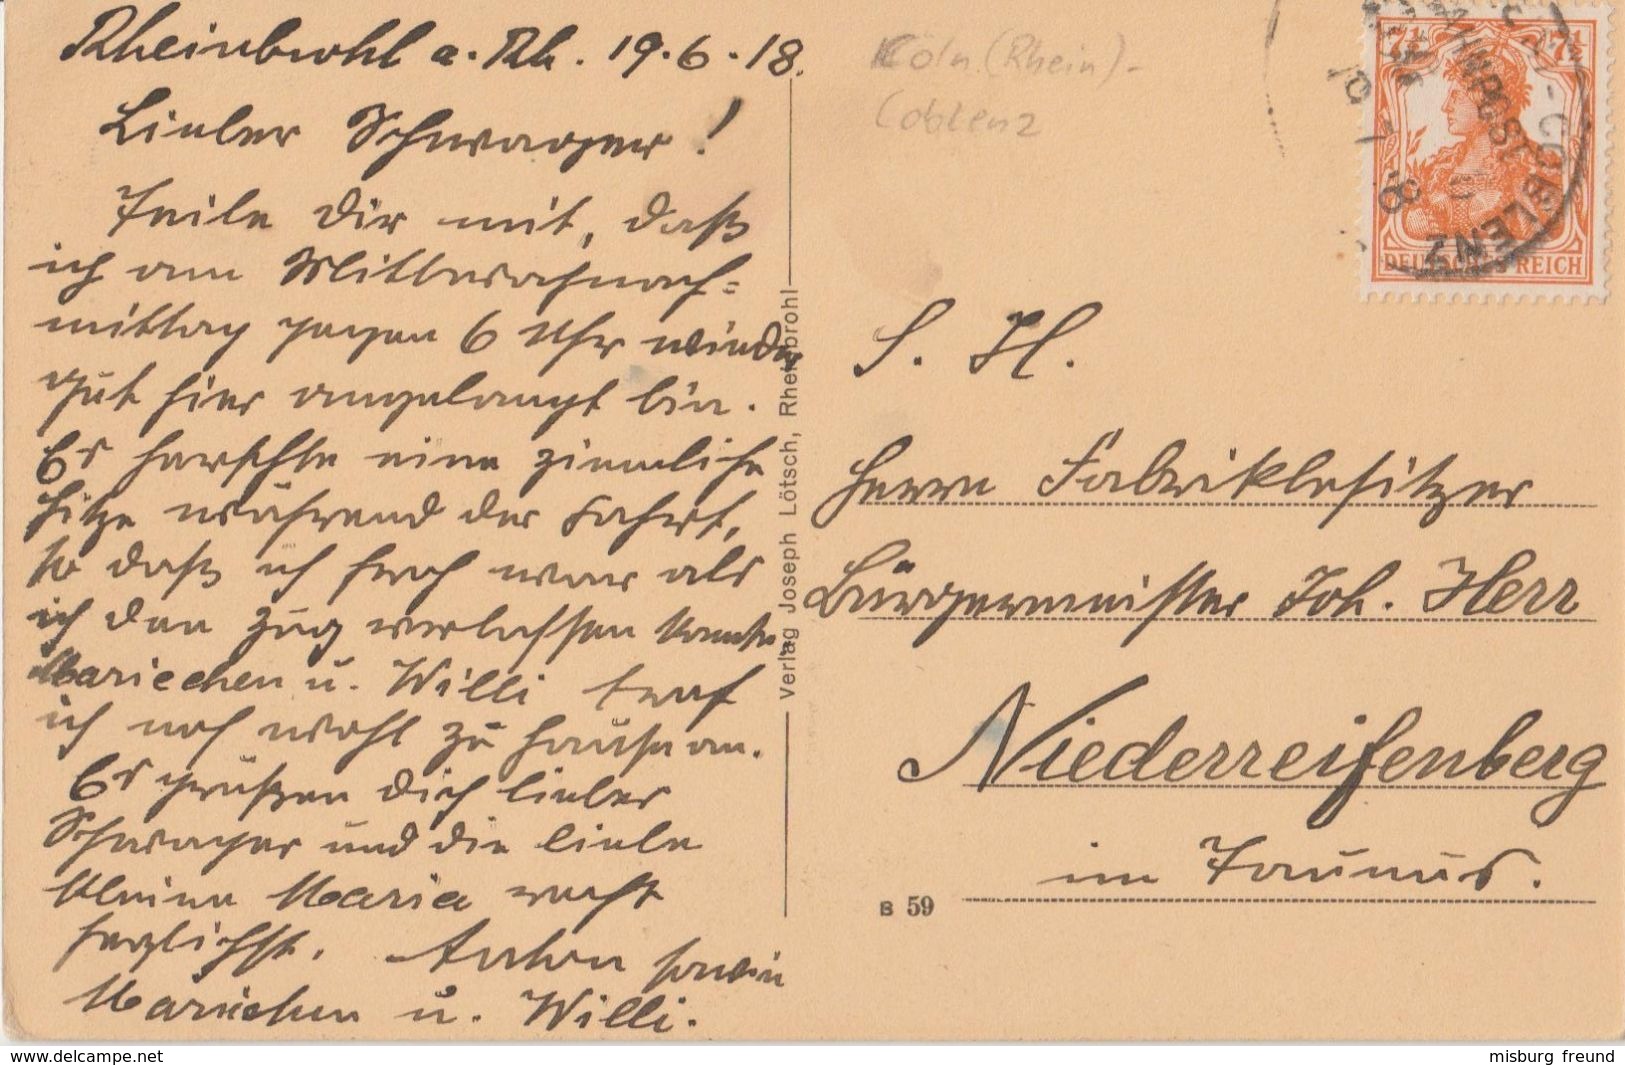 Rheinbrohl a. Rh. 19.6.18.
Lieber Schwager!
Teile Dir mit, daß
ich am Mittwochnach=
mittag gegen 6 Uhr wieder
gut hier angelangt bin.
Es herrschte eine ziemliche
Hitze während der Fahrt,
so daß ich froh war als
ich den Zug verlassen konnte.
Mariechen u. Willi traf
ich noch wohl zu Hause an.
Es grüßen Dich lieber
Schwager und die liebe
kleine Maria recht
herzlichst. Anton sowie
Mariechen u. Willi.
Verlag Joseph Lötsch, Rheinbrohl
Cöln (Rhein) -
Coblenz
7½ 7½
DEUTSCHES REICH
COBLENZ
BAHNPOST
S. H.
Herrn Fabrikbesitzer
Bürgermeister Joh. Herr
Niederreifenberg
im Taunus.
B 59
www.delcampe.net
misburg freund